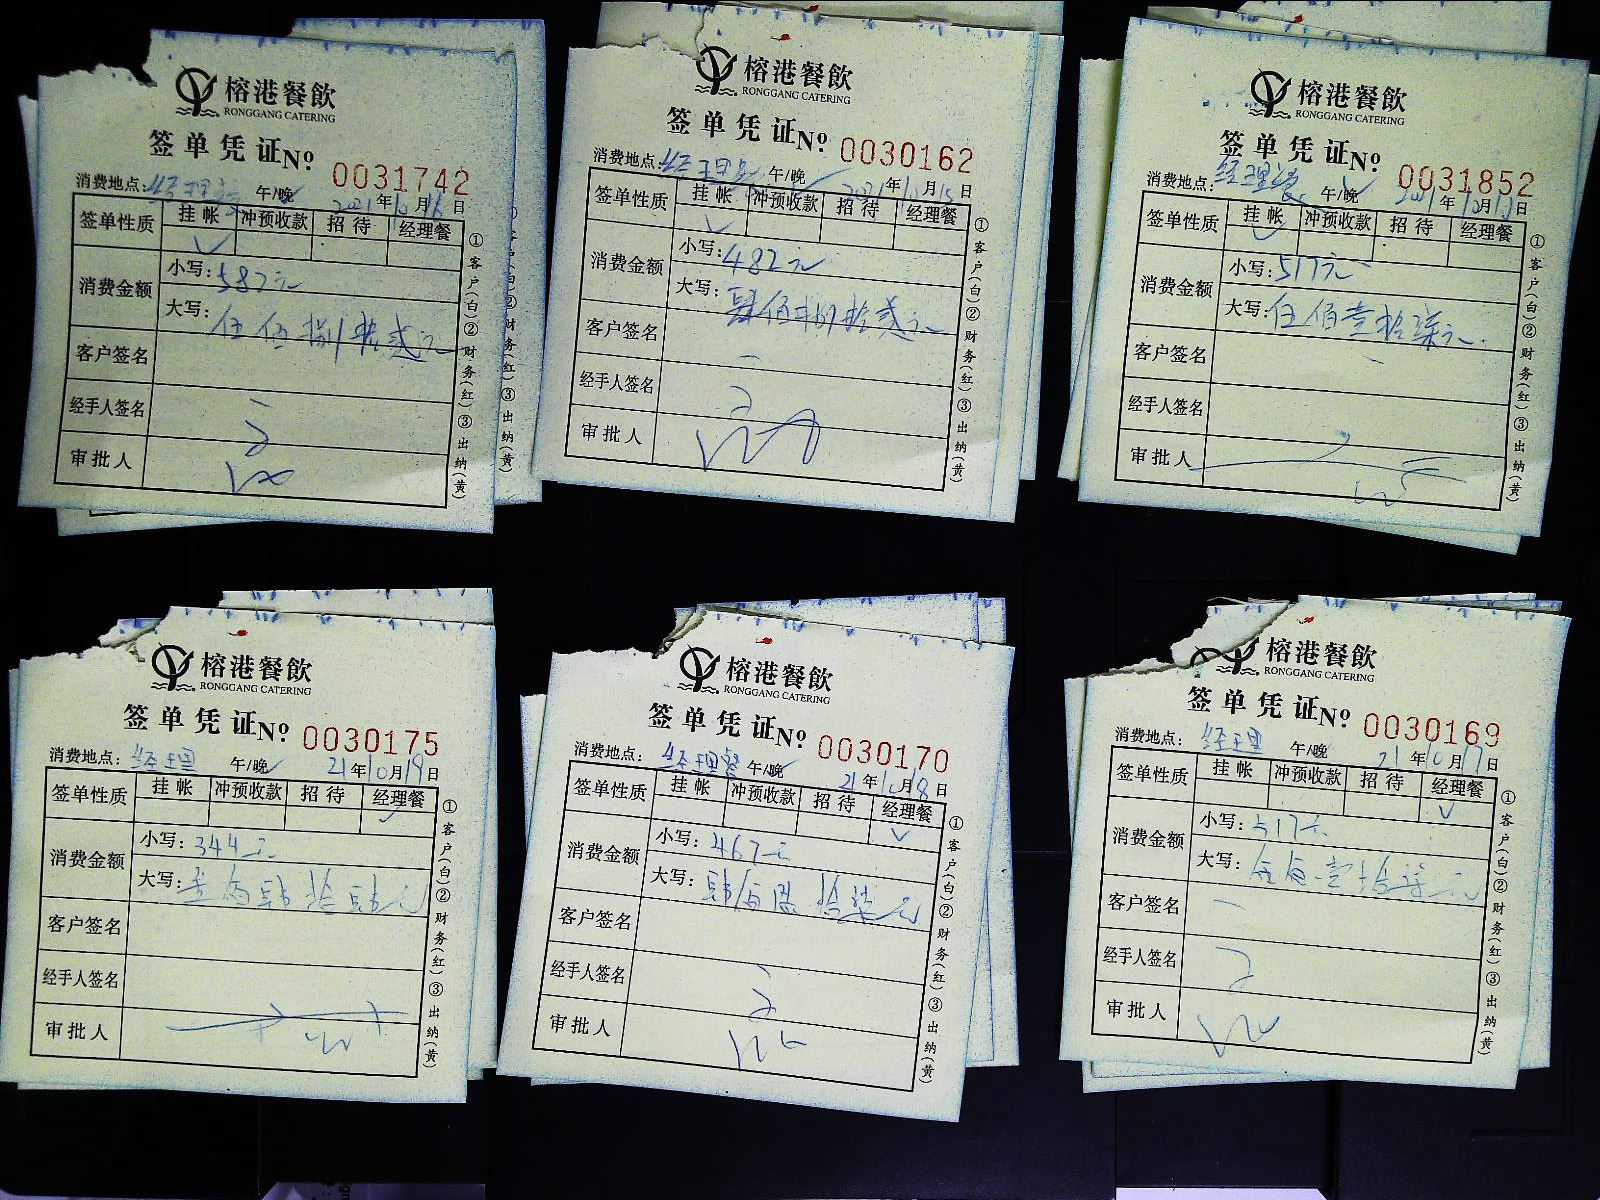 榕港餐飲
RONGGANG CATERING
签单凭证 Nº 0031742
消费地点: 午/晚 2021年10月16日
签单性质 挂帐 冲预收款 招待 经理餐
消费金额 小写: 582元
大写: 伍佰捌拾贰元
客户签名
经手人签名
审批人
①客户(白)②财务(红)③出纳(黄)
榕港餐飲
RONGGANG CATERING
签单凭证 Nº 0030162
消费地点: 午/晚 2021年10月15日
签单性质 挂帐 冲预收款 招待 经理餐
消费金额 小写: 482元
大写: 肆佰捌拾贰元
客户签名
经手人签名
审批人
①客户(白)②财务(红)③出纳(黄)
榕港餐飲
RONGGANG CATERING
签单凭证 Nº 0031852
消费地点: 经理餐 午/晚 2021年10月日
签单性质 挂帐 冲预收款 招待 经理餐
消费金额 小写: 517元
大写: 伍佰壹拾柒元
客户签名
经手人签名
审批人
①客户(白)②财务(红)③出纳(黄)
榕港餐飲
RONGGANG CATERING
签单凭证 Nº 0030175
消费地点: 经理 午/晚 21年10月19日
签单性质 挂帐 冲预收款 招待 经理餐
消费金额 小写: 344元
大写: 叁佰肆拾肆元
客户签名
经手人签名
审批人
①客户(白)②财务(红)③出纳(黄)
榕港餐飲
RONGGANG CATERING
签单凭证 Nº 0030170
消费地点: 经理餐 午/晚 21年10月18日
签单性质 挂帐 冲预收款 招待 经理餐
消费金额 小写: 467元
大写: 肆佰陆拾柒元
客户签名
经手人签名
审批人
①客户(白)②财务(红)③出纳(黄)
榕港餐飲
RONGGANG CATERING
签单凭证 Nº 0030169
消费地点: 经理 午/晚 21年10月17日
签单性质 挂帐 冲预收款 招待 经理餐
消费金额 小写: 517元
大写: 伍佰壹拾柒元
客户签名
经手人签名
审批人
①客户(白)②财务(红)③出纳(黄)